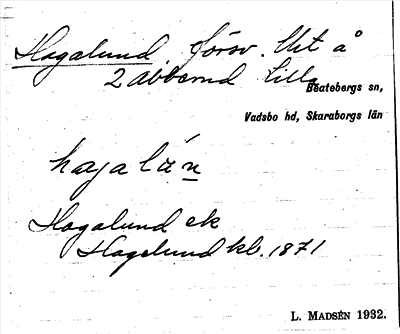 Hagalund försv. Ut å
2 Abborrud Lilla
Beatebergs sn,
Vadsbo hd, Skaraborgs län
hagalún
Hagalund ek
Hagelund kb. 1871
L. MADSÉN 1932.